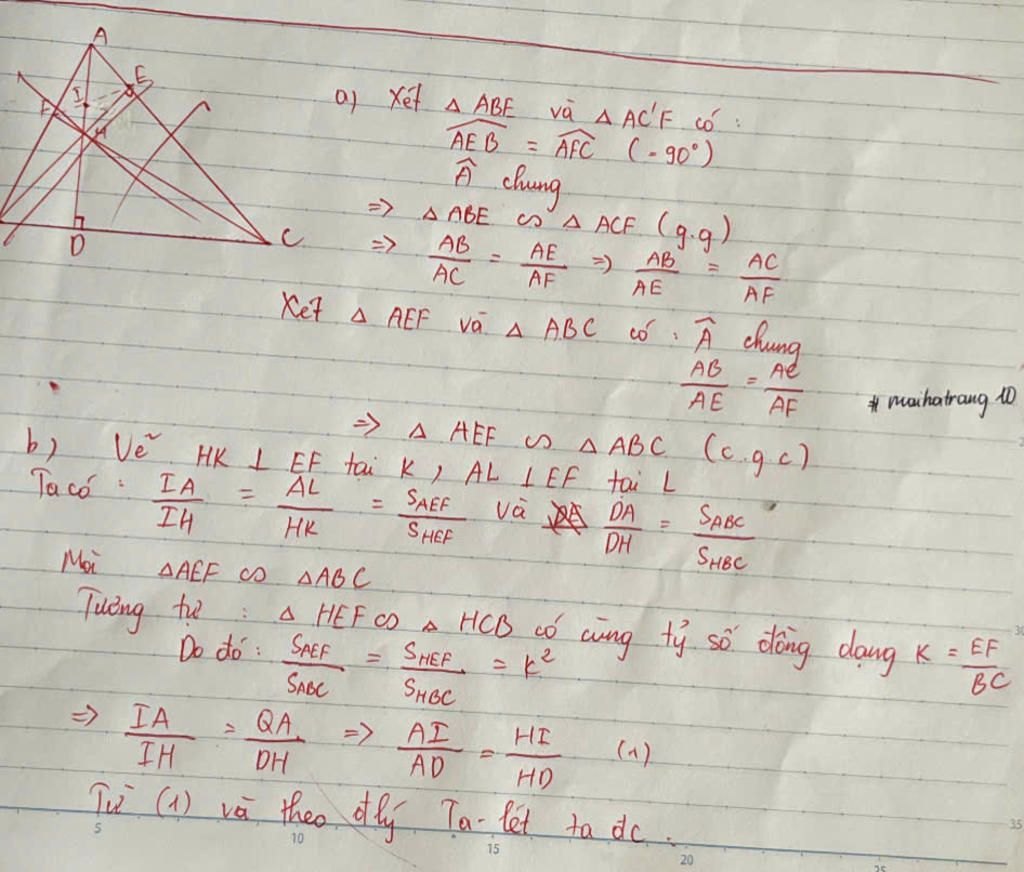 A
E
I
F
H
D
C
a) Xét △ ABE và △ AC'F có :
AEB = AFC (= 90°)
Â chung
=> △ ABE ∽ △ ACF (g.g)
=> AB/AC = AE/AF => AB/AE = AC/AF
Xét △ AEF và △ ABC có : Â chung
AB/AE = AC/AF
# maihatrang 10
=> △ AEF ∽ △ ABC (c.g.c)
b) Vẽ HK ⊥ EF tại K, AL ⊥ EF tại L
Ta có : IA/IH = AL/HK = S_AEF/S_HEF và DA/DH = S_ABC/S_HBC
Mà △AEF ∽ △ABC
Tương tự : △ HEF ∽ △ HCB có cùng tỷ số đồng dạng K = EF/BC
Do đó : S_AEF/S_ABC = S_HEF/S_HBC = k²
=> IA/IH = QA/DH => AI/AD = HI/HD (1)
Từ (1) và theo đlý Ta-lét ta đc .
5 10 15 20 25
30
35